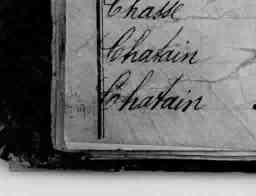 Chasse
Chatain
Chatain